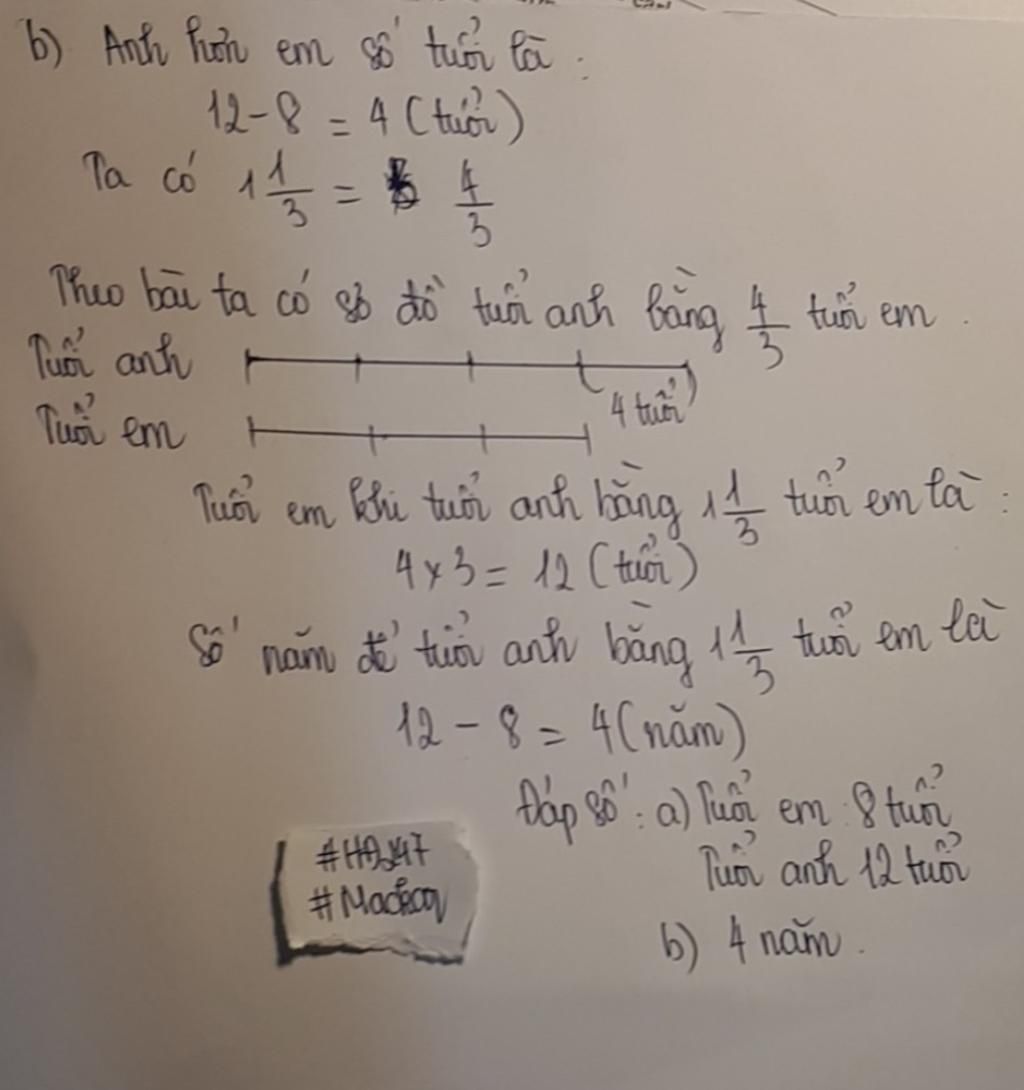 b) Anh hơn em số tuổi là :
12 - 8 = 4 (tuổi)
Ta có 1 1/3 = 4/3
Theo bài ta có sơ đồ tuổi anh bằng 4/3 tuổi em .
Tuổi anh
4 tuổi
Tuổi em
Tuổi em khi tuổi anh bằng 1 1/3 tuổi em là :
4 x 3 = 12 (tuổi)
Số năm để tuổi anh bằng 1 1/3 tuổi em là
12 - 8 = 4 (năm)
Đáp số : a) Tuổi em : 8 tuổi
Tuổi anh 12 tuổi
b) 4 năm .